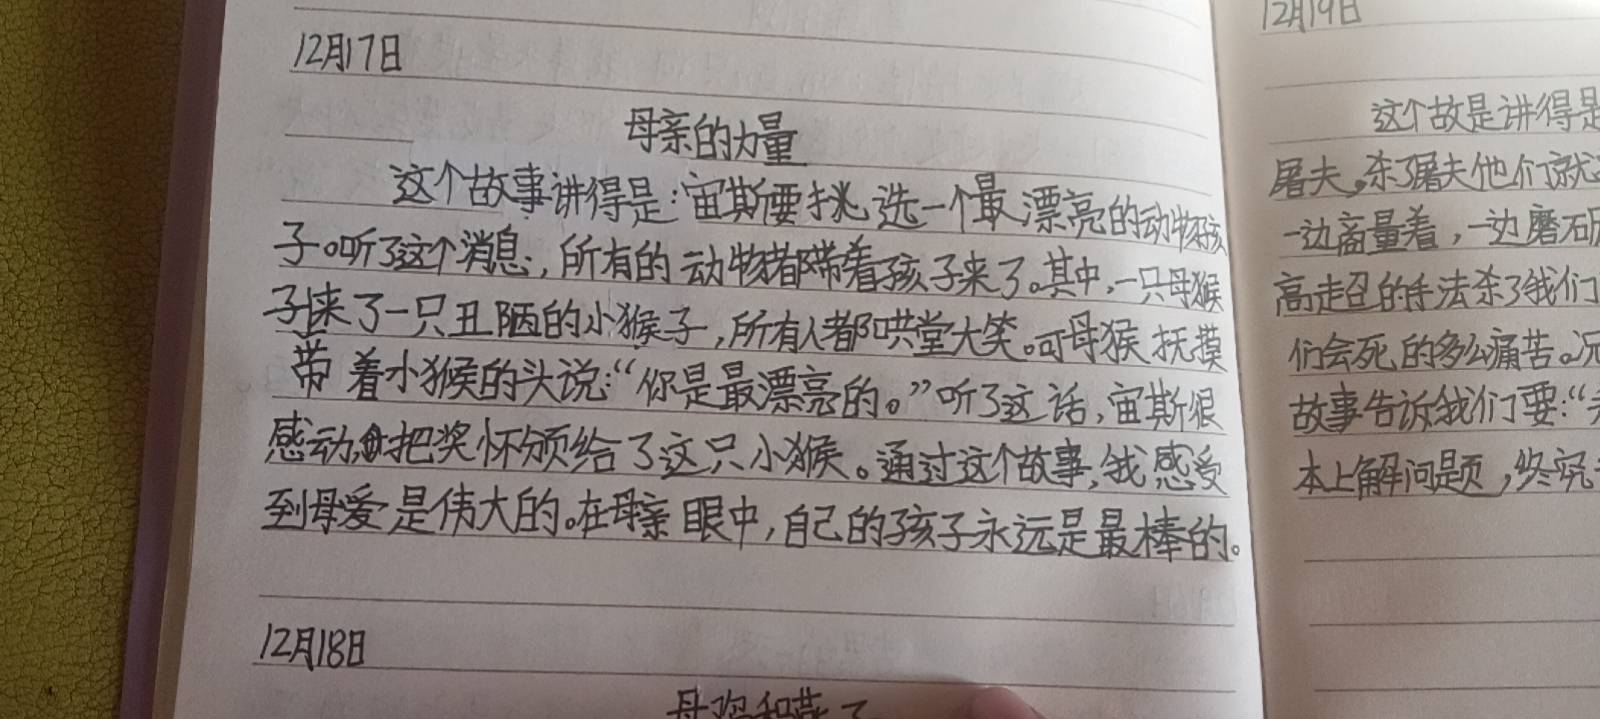 12月17日
母亲的力量
这个故事讲得是:宙斯要挑选一个最漂亮的动物孩
子。听了这个消息,所有的动物都带着孩子来了。其中,一只母猴
子带来了一只丑陋的小猴子,所有人都哄堂大笑。可母猴抚摸
着小猴的头说:“你是最漂亮的。”听了这话,宙斯很
感动,把奖怀颁给了这只小猴。通过这个故事,我感受
到母爱是伟大的。在母亲眼中,自己的孩子永远是最棒的。
12月18日
母鸡和燕子
12月19日
这个故是讲得是
屠夫,杀了屠夫他们就
一边商量着,一边磨
高超的手法杀了我们
们会死的多么痛苦。况
故事告诉我们要:“
本上解问题,终究